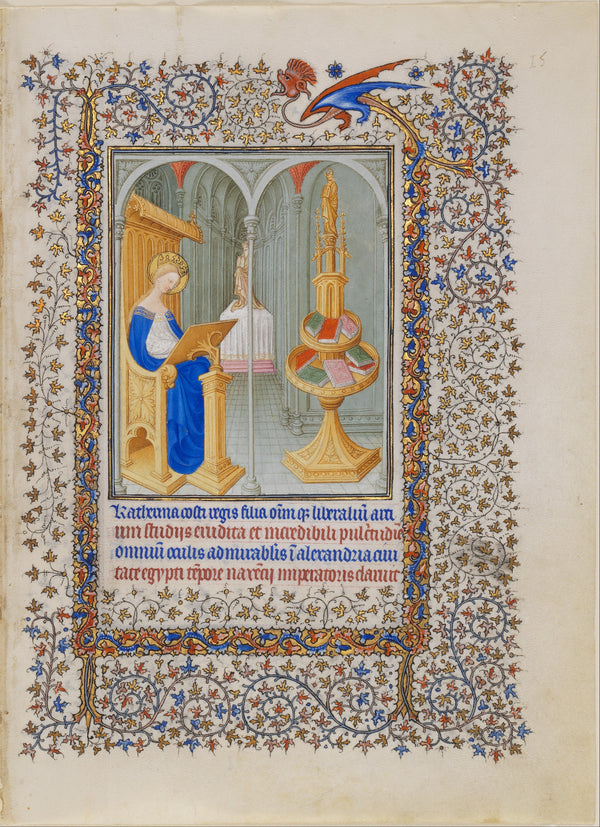 15
Katherina costi regis filia om̄i q̄ liberaliū arti
um studijs erudita et incredibili pulcritudine
omnium oculis admirabilis ī alexandria ciui
tate egypti tp̄ore maxēcij imperatoris claruit